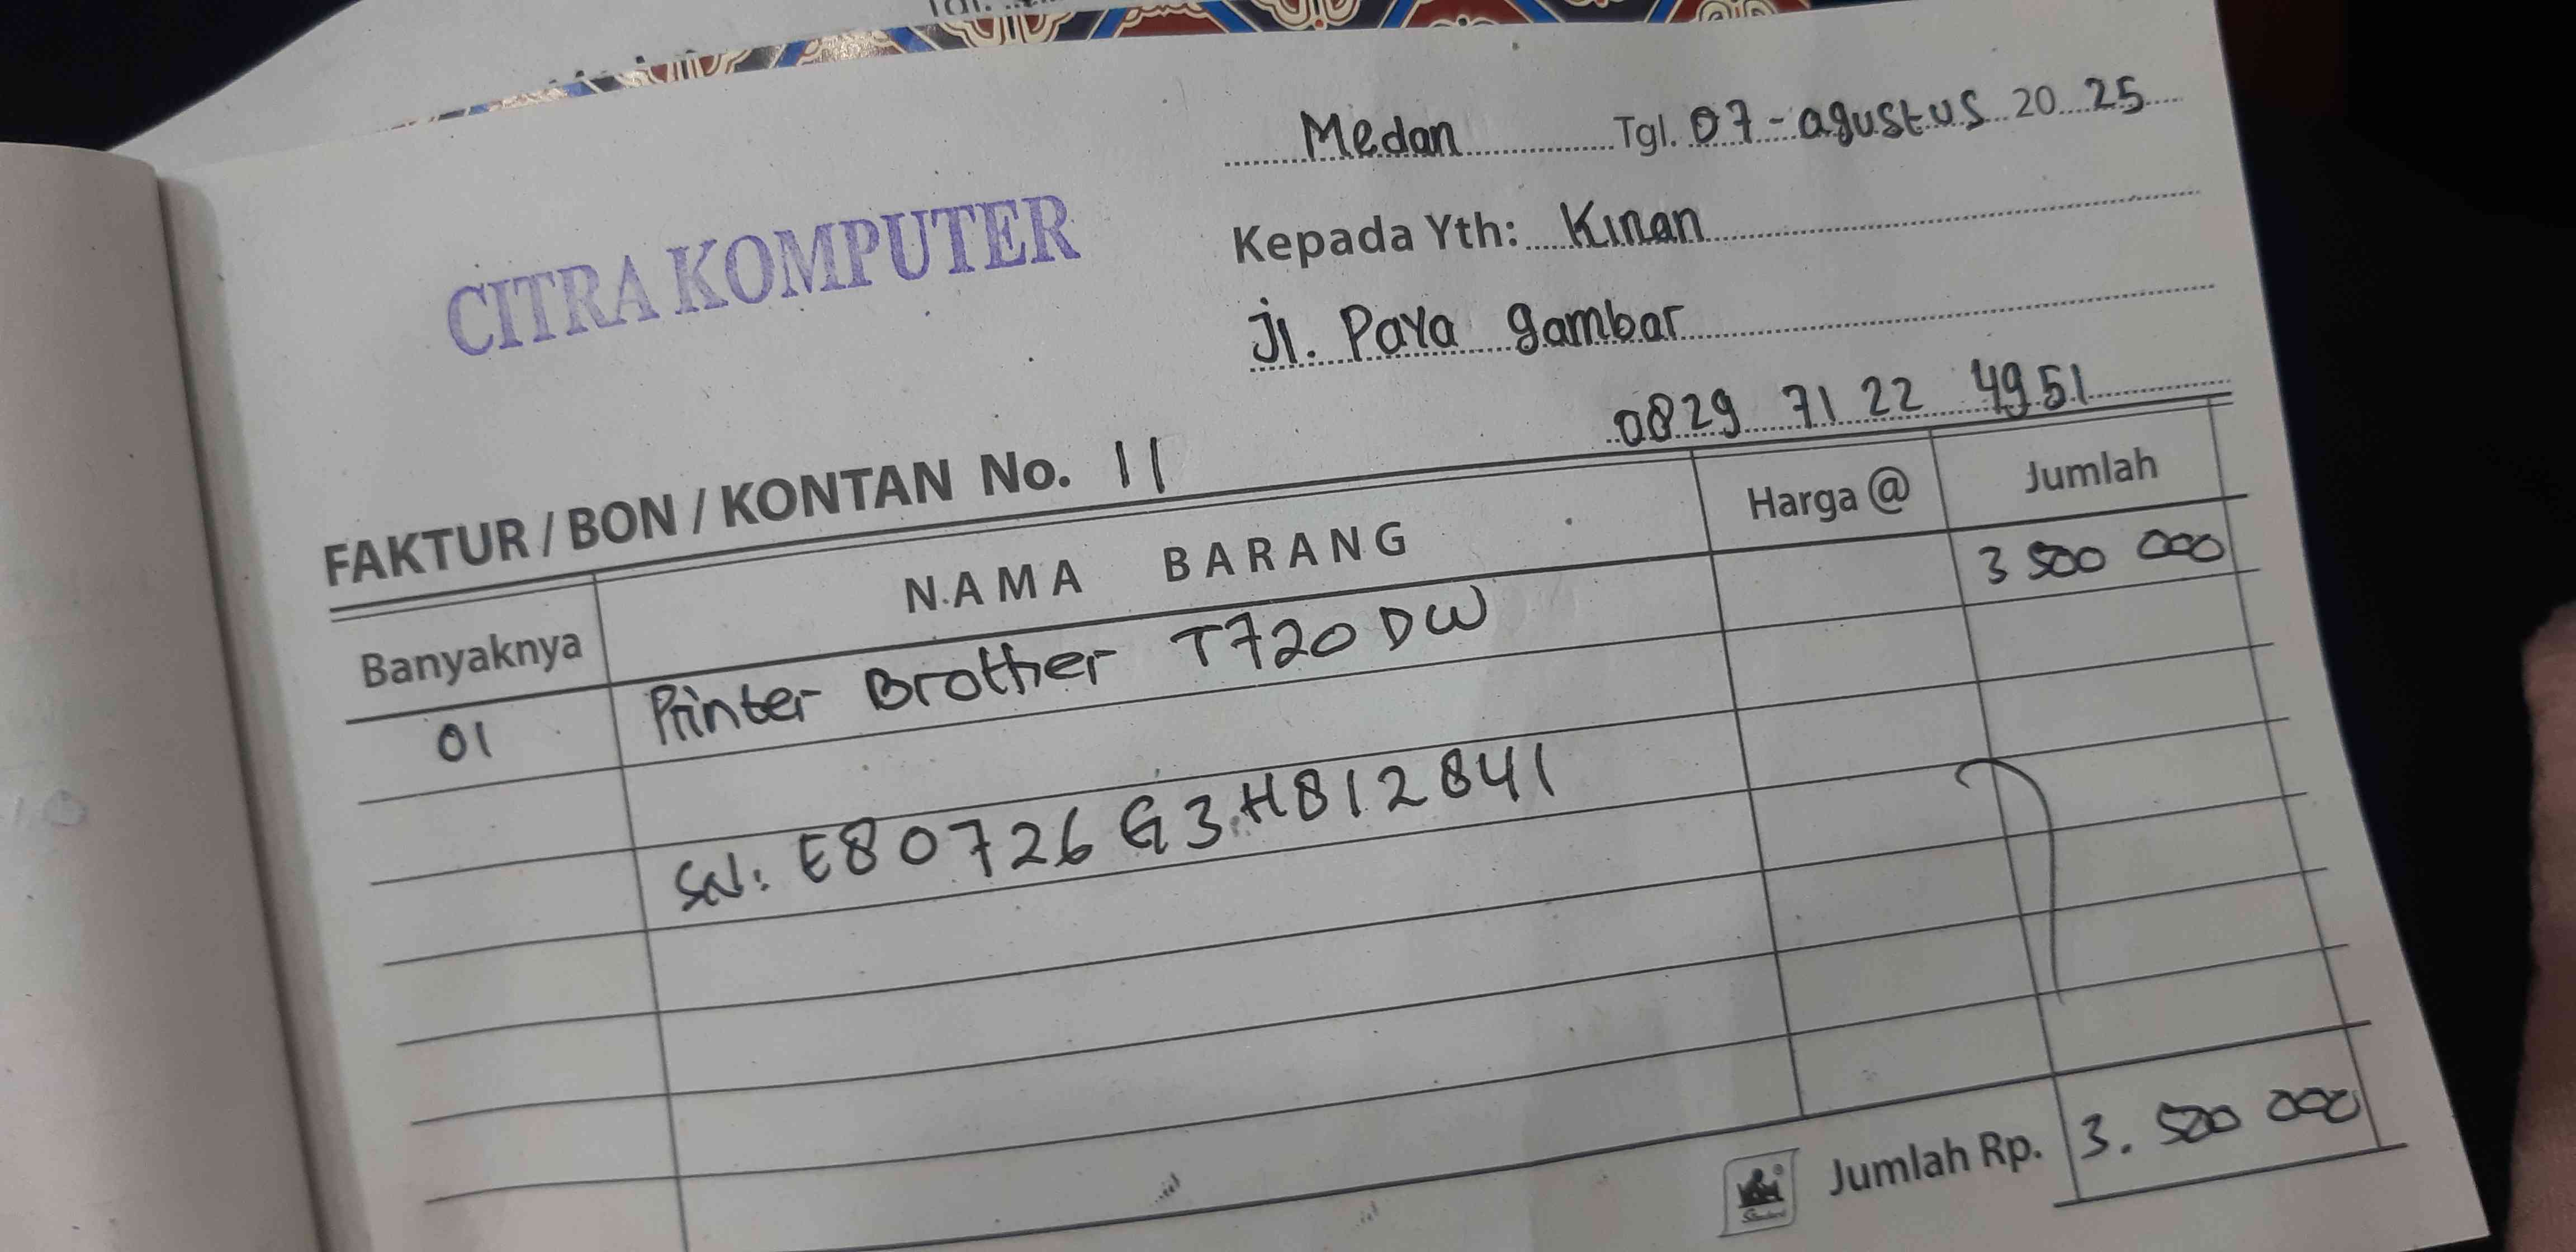 Medan Tgl. 07-agustus 2025
CITRA KOMPUTER
Kepada Yth: Kinan
Jl. Paya gambar
0829 7122 4951
FAKTUR / BON / KONTAN No. 11
Banyaknya NAMA BARANG Harga @ Jumlah
01 Printer Brother T720DW 3 500 000
SN: E80726G3H812841
Jumlah Rp. 3. 500 000